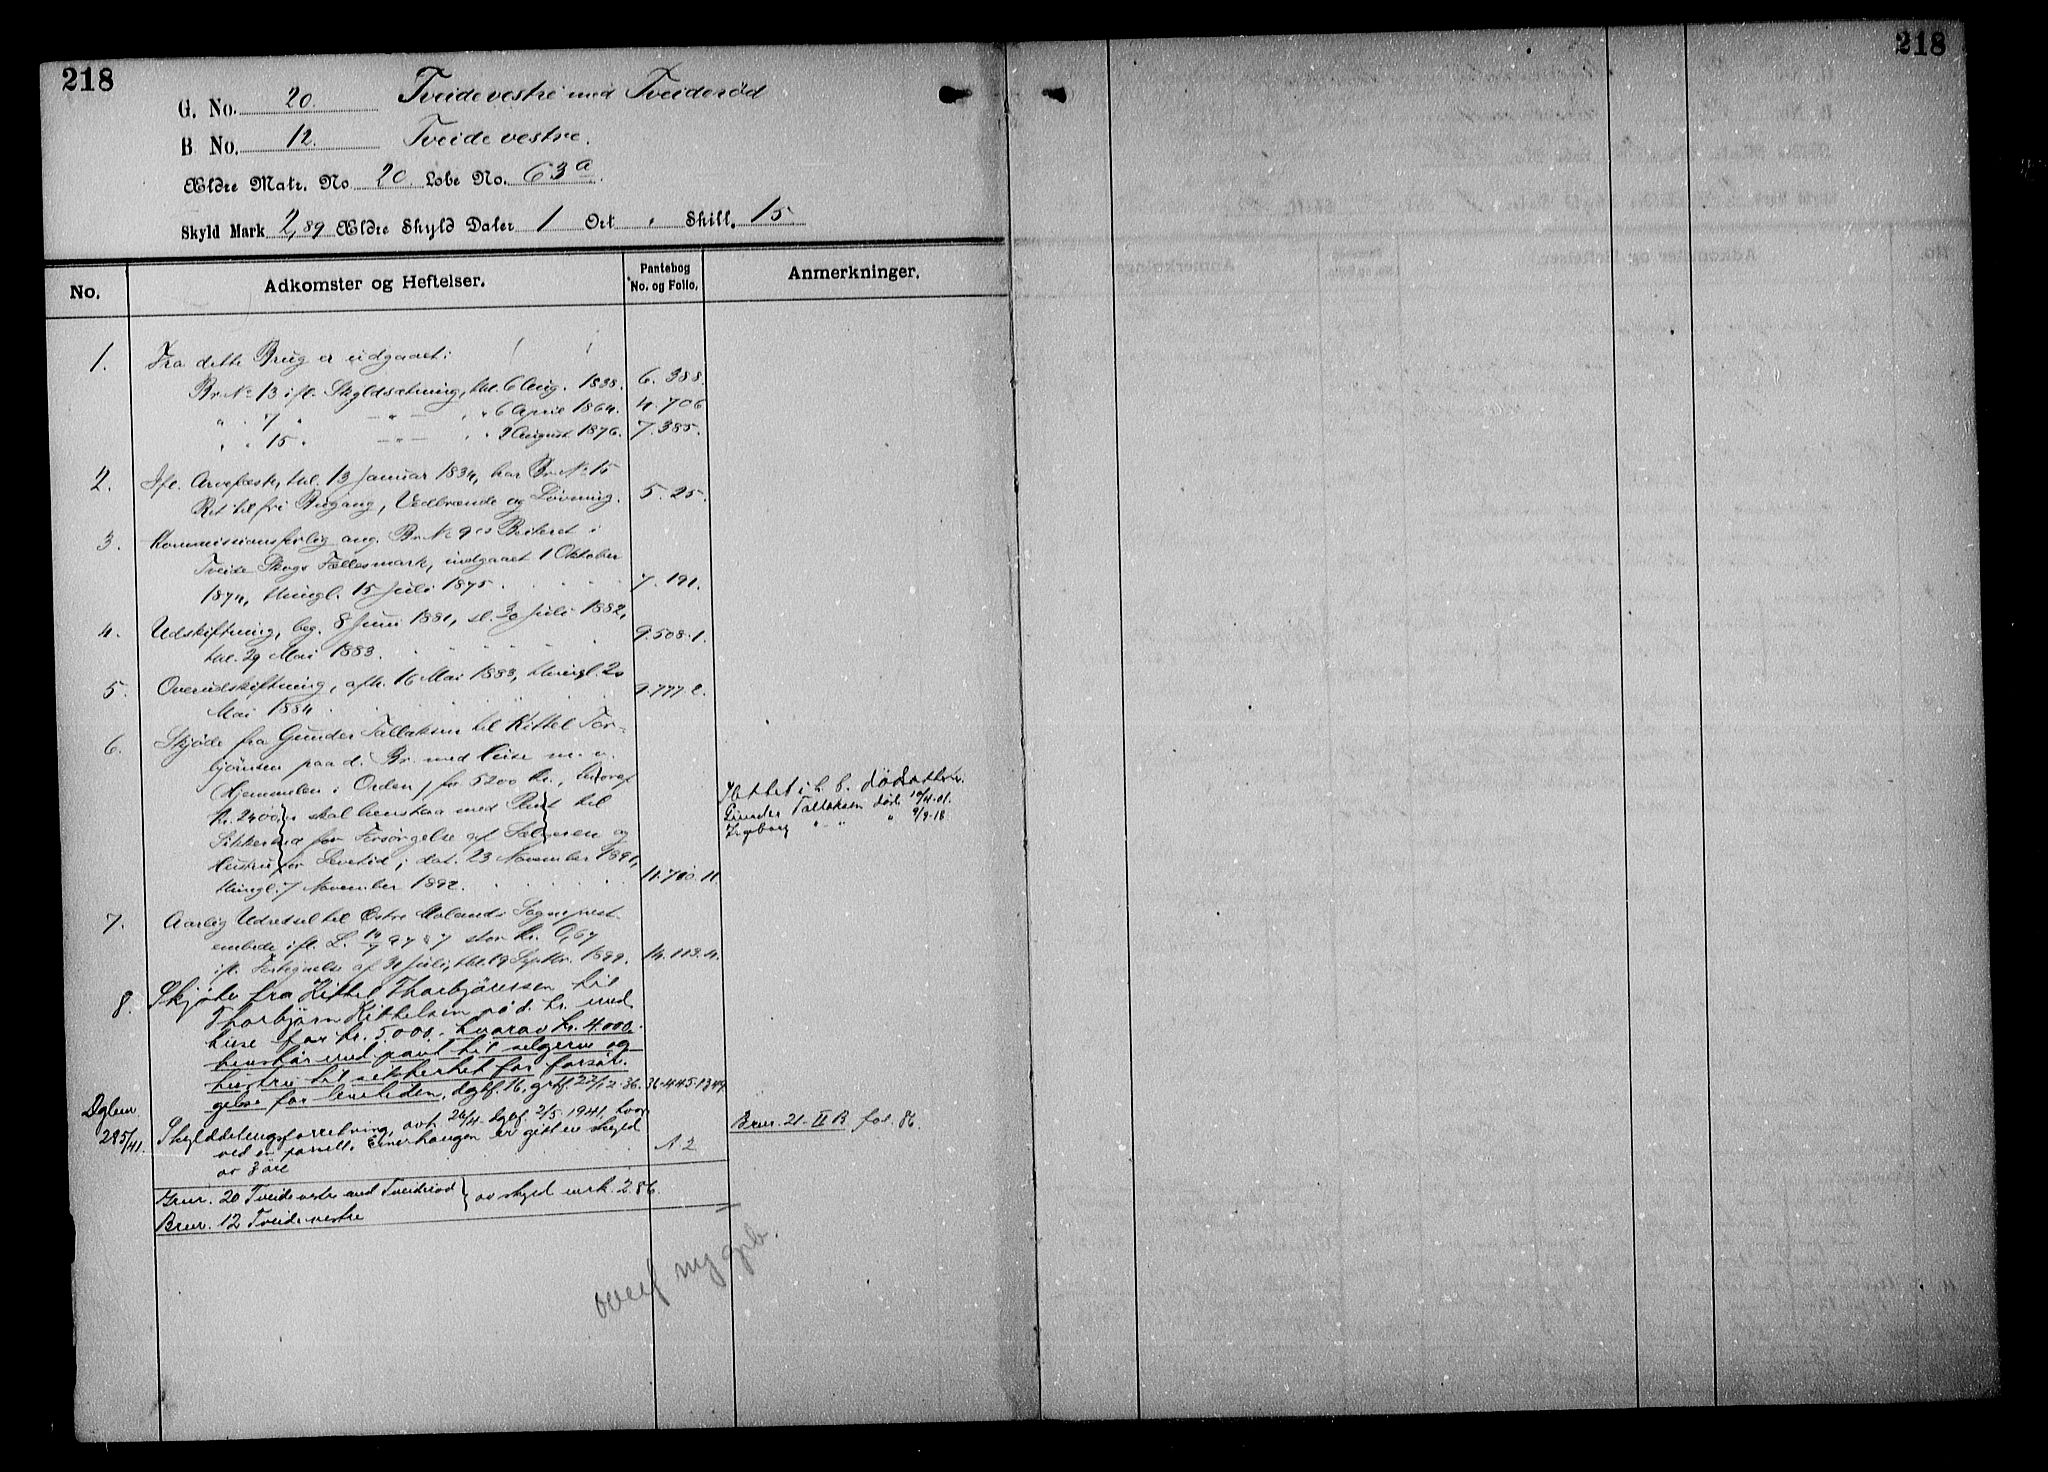 218
218
G. No. 20. Tveide vestre med Tveiderød
B No. 12. Tveide vestre.
Ældre Matr. No 20. Løbe No. 63a.
Skyld Mark 2,89 Ældre Skyld Daler 1 Ort " Skill. 15
No. Adkomster og Heftelser. Pantebog No. og Folio. Anmerkninger.
1. Fra dette Brug er udgaaet:
Br. No 13 ifl. Skyldsætning, thl. 6 Aug. 1838. 6. 388.
" " 7 " — " — , " 6 April 1864. 4. 706
" " 15 " — " — , " 9 August 1876. 7. 385.
2. Ifl. Arvefæste, thl. 13 Januar 1834, har Br. No 15
Ret til fri Bugang, Vedbrænde og Løvning. 5. 25.
3. Kommissionsforlig ang. Br. No 9's Beiteret i
Tveide Skogs Fællesmark, indgaaet 1 Oktober
1874, thingl. 15 Juli 1875. 7. 191.
4. Udskiftning, beg. 8 Juni 1881, sl. 30 Juli 1882,
thl. 29 Mai 1883. 9. 508. 1.
5. Overudskiftning, afh. 16 Mai 1883, thingl. 20
Mai 1884 9. 777. 2.
6. Skjøde fra Gunder Tallaksen til Kittel Tor-
bjönsen paa d. Br. med Huse m. v.
(Hjemmelen i Orden) for 5200 Kr., hvoraf
Kr. 2400, skal henstaa med Pant til
Sikkerhed for Forsørgelse af Sælgeren og
Hustru for Levetid; dat. 23 November 1891,
thingl. 7 November 1892. 11. 710. 11.
Gunder Tallaksen død 10/4-01.
Ingeborg " - " " 9/9-18
7. Aarlig Udredsel til Østre Molands Sogneprest-
embede ifl. L. 14/7 97 § 7 stor Kr. 0,67
ifl. Fortegnelse af 31 Juli, thl. 19 Septbr. 1899. 14. 113. 4.
8. Skjøte fra Kittel Thorbjörnsen til
Thorbjörn Kittelsen på d. br. med
huse for kr. 5.000. hvorav kr. 4000.
henstår med pant til selgeren og
hustru til sikkerhet for forsør-
gelse for levetiden, dgbf. 16, grbf. 22/12-36. 36-445-1349
Dglnr. 285/41. Skylddelingsforretning, avh. 26/4 dgbf. 2/5 1941, hvor-
ved en parsell, Einerhaugen er gitt en skyld
av 3 øre A 2
Brnr. 21-II B fol. 86.
Gnr. 20 Tveide vestre med Tveiderød } av skyld mrk. 2.86.
Brnr. 12 Tveide vestre
overf ny grb.